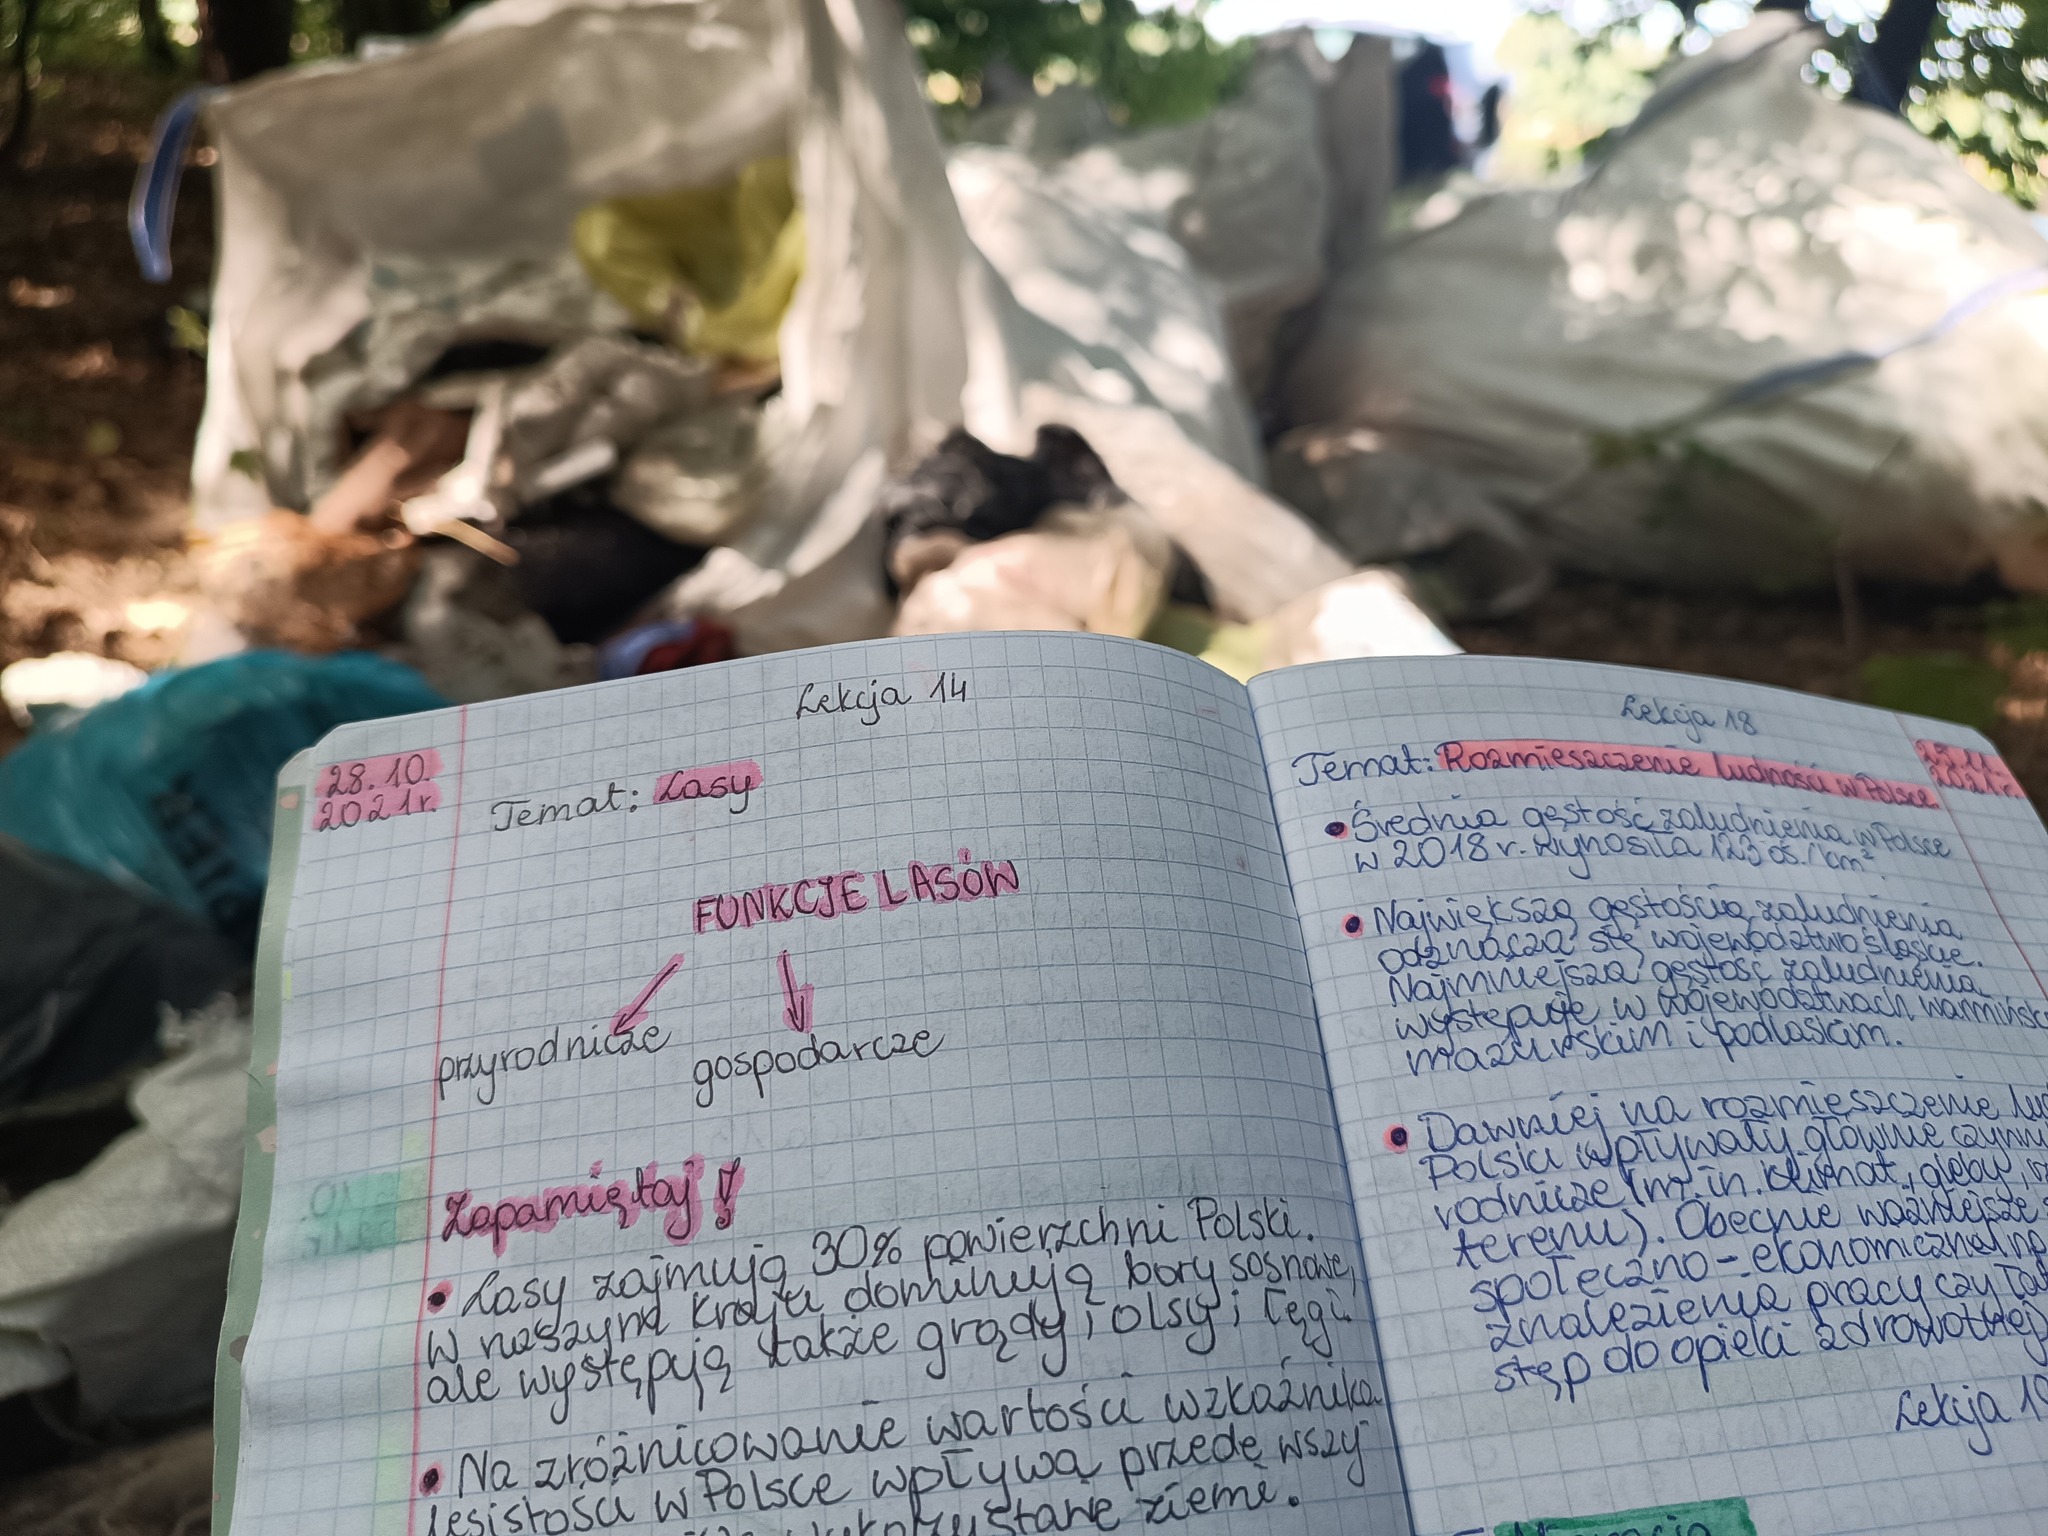 Lekcja 14
28.10.
2021r.
Temat: Lasy
FUNKCJE LASÓW
przyrodnicze
gospodarcze
Zapamiętaj!
• Lasy zajmują 30% powierzchni Polski.
W naszym kraju dominują bory sosnowe,
ale występują także grądy, olsy i łęgi.
• Na zróżnicowanie wartości wzkaźnika
lesistości w Polsce wpływa przede wszy
ziemie.
Lekcja 18
Temat: Rozmieszczenie ludności w Polsce
25.11.
2021r.
• Średnia gęstość zaludnienia w Polsce
w 2018 r. wynosiła 123 os./km².
• Największą gęstością zaludnienia
odznacza się województwo śląskie.
Najmniejsza gęstość zaludnienia
występuje w województwach warmińsko
mazurskim i podlaskim.
• Dawniej na rozmieszczenie
Polski wpływały głównie
rodnicze (m.in. klimat, gleby,
terenu). Obecnie ważniejsze
społeczno-ekonomiczne, np.
znalezienia pracy czy
stęp do opieki zdrowotnej
Lekcja 19
Migracja